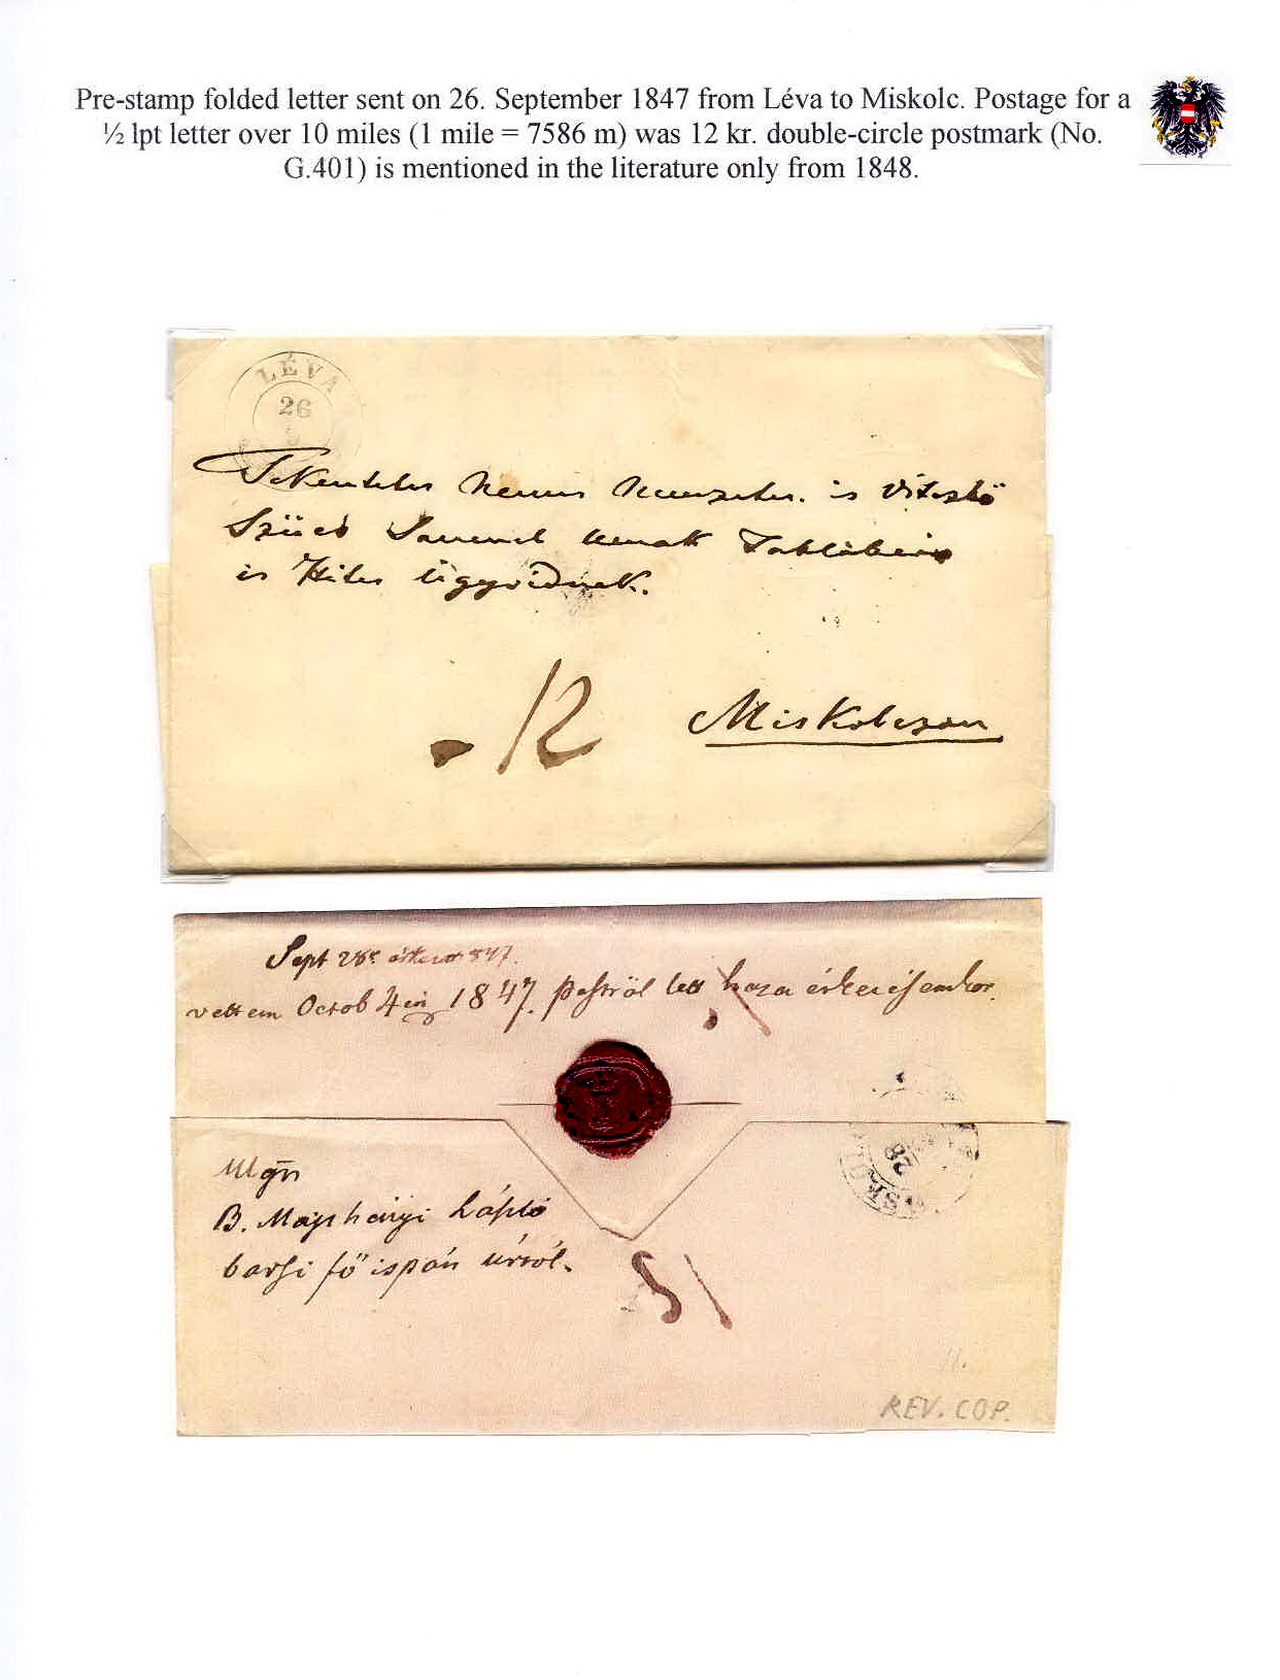 Pre-stamp folded letter sent on 26. September 1847 from Léva to Miskolc. Postage for a
½ lpt letter over 10 miles (1 mile = 7586 m) was 12 kr. double-circle postmark (No.
G.401) is mentioned in the literature only from 1848.
LÉVA
26
Tekentetes Nemes Nemzetes. és Vitézlő
Szűcs Samuel Urnak Táblabiro
és Hites ügyvédnek.
12
Miskolczon
Sept 28 847.
vettem Octob 4én 1847. Pestről lett haza érkezésemkor.
28
B. Majthényi László
barsi fő ispán úrtól.
REV. COP.